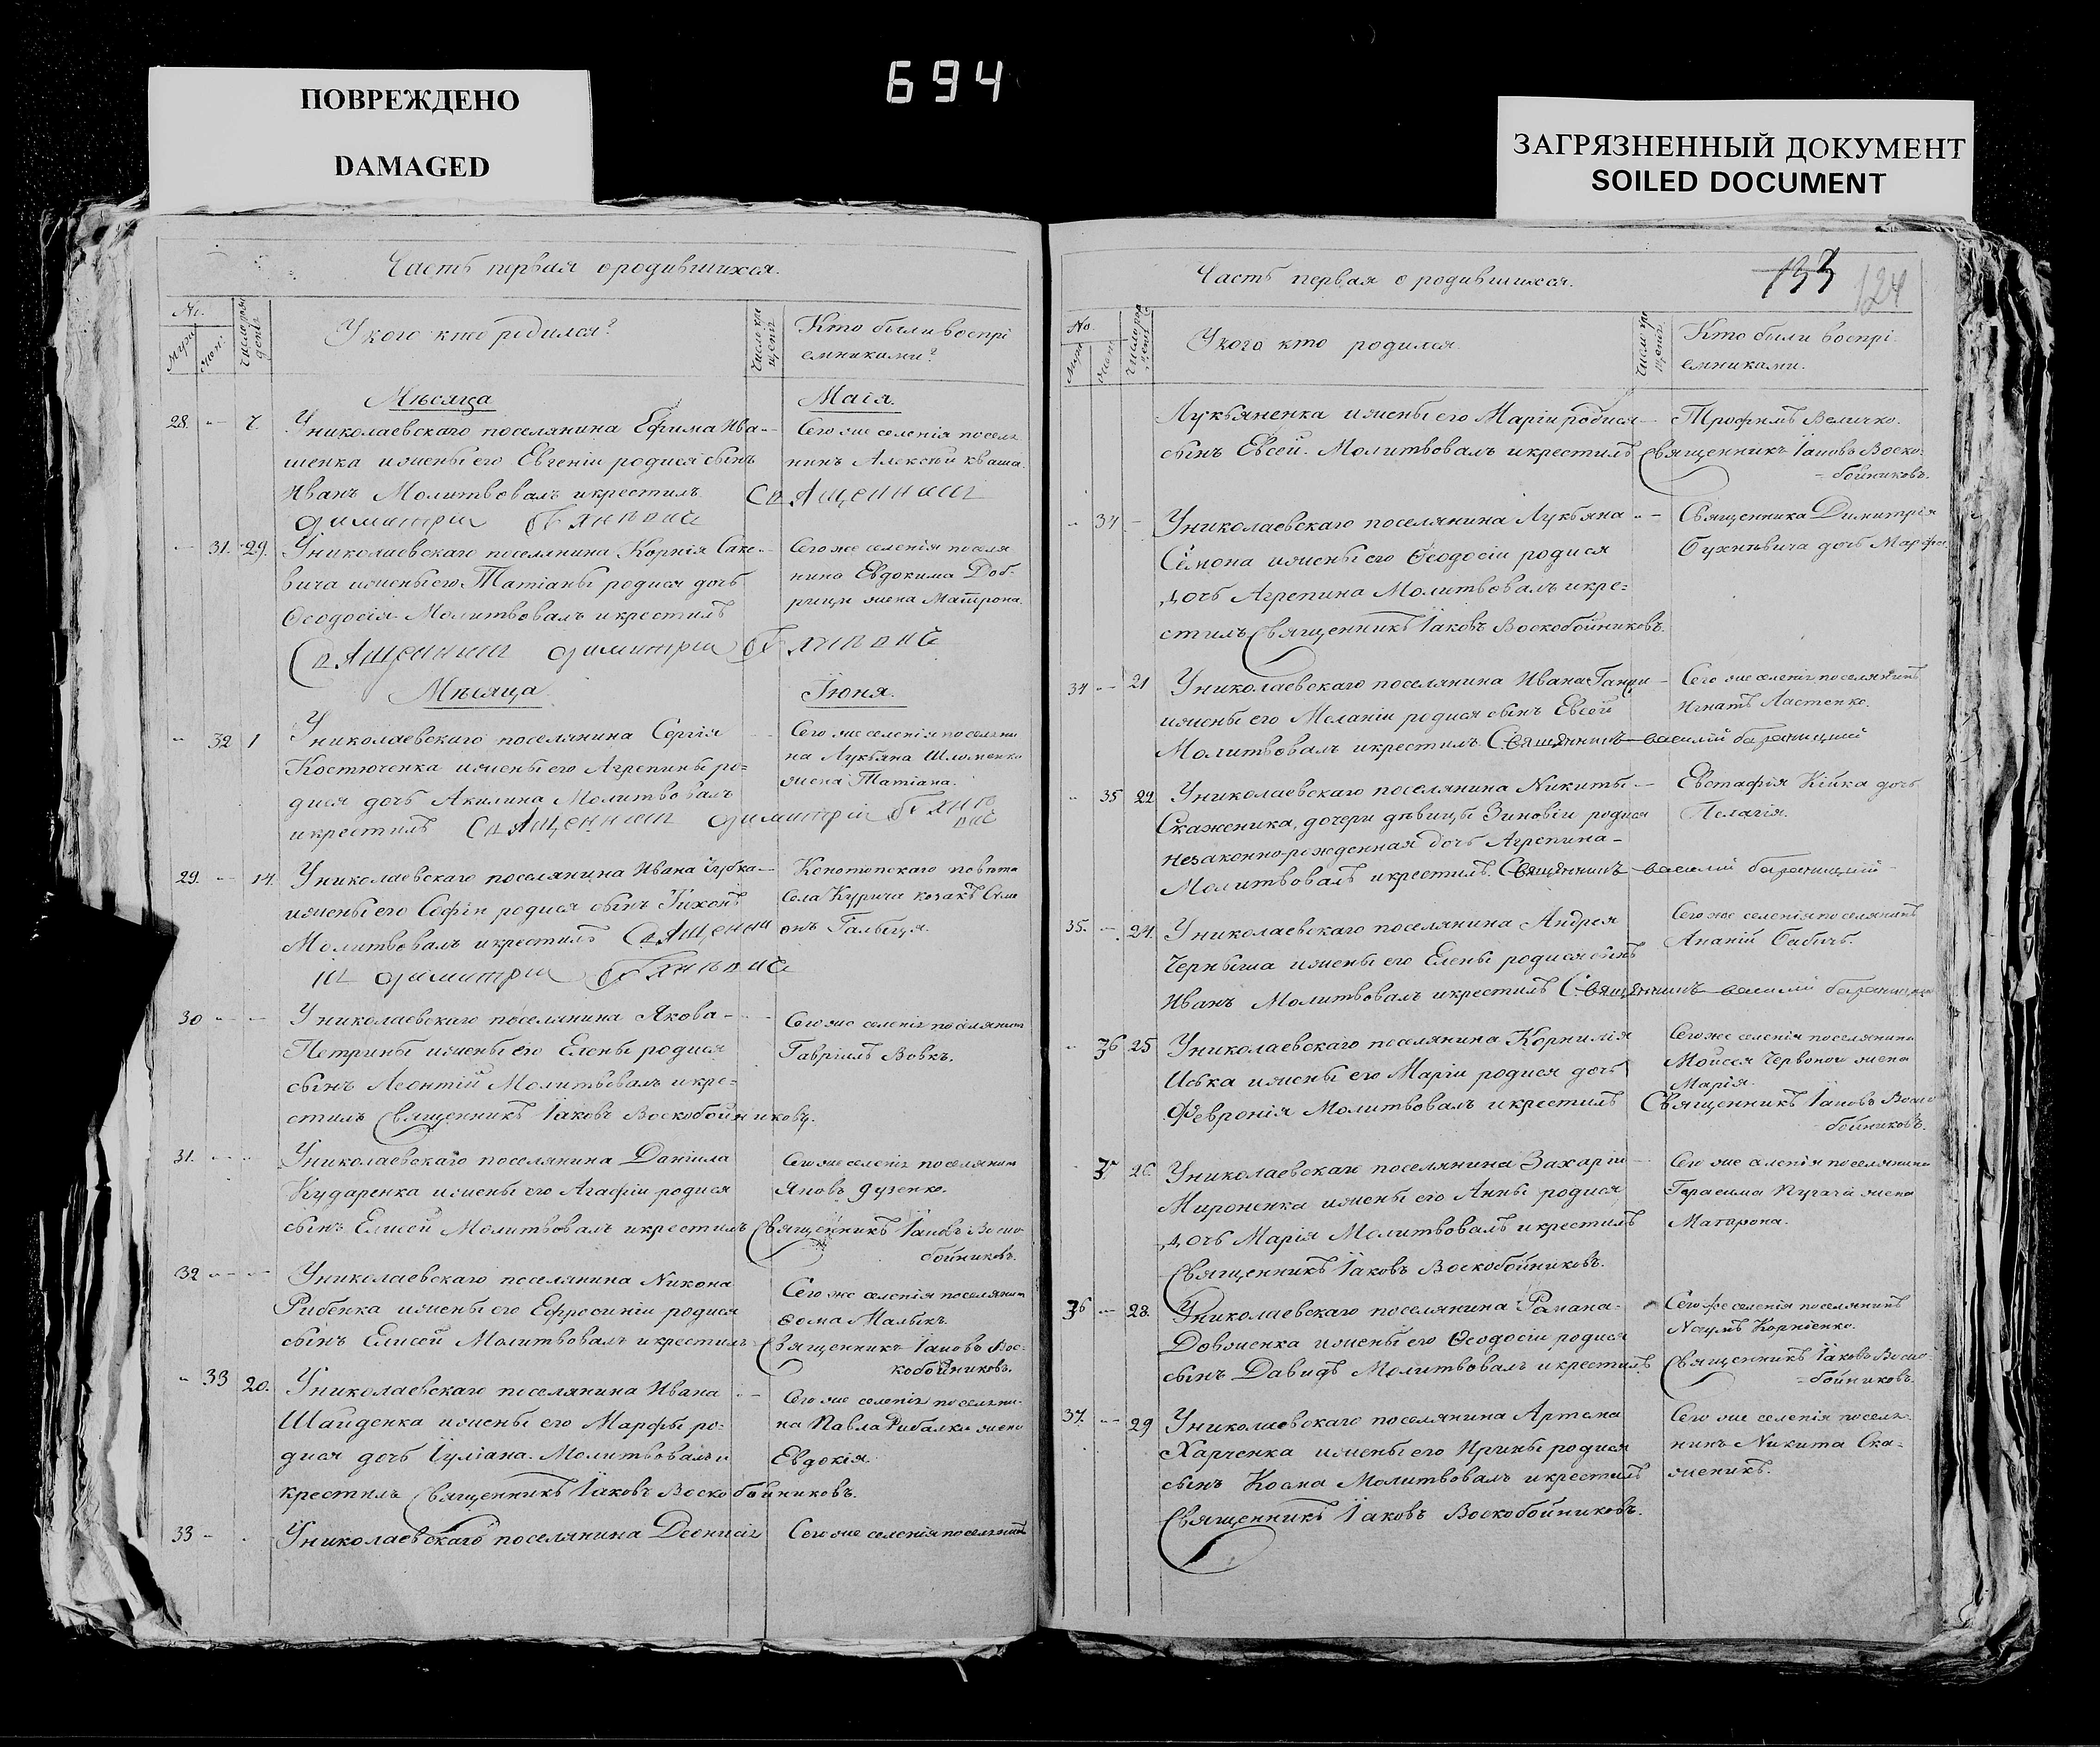 694
ПОВРЕЖДЕНО
DAMAGED
ЗАГРЯЗНЕННЫЙ ДОКУМЕНТ
SOILED DOCUMENT
Часть первая ородившихся.
№.
У кого кто родился?
Кто были воспрі
емниками?
Мѣсяца Маія.
28. 7. Униколаевскаго поселянина Ефима Ива-
шенка ижены его Евгеніи родися сынъ
Иванъ Молитвовалъ икрестилъ Священникъ
Димитрій
Сего же селенія поселя
нинъ Алексѣй Кваша.
31. 29. Униколаевскаго поселянина Корнія Сак-
вича ижены его Татіаны родися дочь
Ѳеодосія Молитвовалъ икрестилъ
Священникъ Димитрій
Сего же селенія поселя
нина Евдокима Доб-
жена Матрона.
Мѣсяца Іюня.
32 1 Униколаевскаго поселянина Сергія
Костюченка ижены его Агрепины ро=
дися дочь Акилина Молитвовалъ
икрестилъ Священникъ Димитрій
Сего же селенія поселяни
на Лукьяна
жена Татіана.
29. 14. Униколаевскаго поселянина Ивана Губка
ижены его Софіи родися сынъ Тихонъ
Молитвовалъ икрестилъ Священни
къ Димитрій
Конотопскаго повѣта
села Курича козакъ Сим
онъ
30 Униколаевскаго поселянина Якова
Петрины ижены его Елены родися
сынъ Леонтій Молитвовалъ икре=
стилъ Священникъ Іаковъ Воскобойниковъ.
Сего же селенія поселянинъ
Гавріилъ Вовкъ.
31. Униколаевскаго поселянина Даніила
Кударенка ижены его Агафіи родися
сынъ Елисей Молитвовалъ икрестилъ Священникъ Іаковъ Воско
бойниковъ.
Сего же селенія поселянинъ
32 Униколаевскаго поселянина Никона
Рибенка ижены его Ефросиніи родися
сынъ Елисей Молитвовалъ икрестилъ Священникъ Іаковъ Вос-
кобойниковъ.
Сего же селенія поселянинъ
Ѳома Малыкъ.
33 20. Униколаевскаго поселянина Ивана
Шайденка ижены его Марфы ро=
дися дочь Іуліана. Молитвовалъ и
крестилъ Священникъ Іаковъ Воскобойниковъ.
Сего же селенія поселяни-
на Павла Рибалки жена
Евдокія.
33 Униколаевскаго поселянина Деонисія
Сего же селенія поселянинъ
Часть первая о родившихся.
133 124
No.
Укого кто родился
Кто были воспрі
емниками.
Лукьяненка ижены его Маріи родися
сынъ Евсей. Молитвовалъ икрестилъ Священникъ Іаковъ Воско-
бойниковъ.
Трофимъ Величко.
34 Униколаевскаго поселянина Лукьяна
Семона ижены его Ѳеодосіи родися
дочь Агрепина Молитвовалъ икре=
стилъ Священникъ Іаковъ Воскобойниковъ.
Священника Димитрія
дочь Марфа
34 21 Униколаевскаго поселянина Ивана
ижены его Меланіи родися сынъ Евсей
Молитвовалъ икрестилъ Священникъ Василій
Сего же селенія поселянинъ
Игнатъ Ластенко.
35 22 Униколаевскаго поселянина Никиты
Скаженика, дочери дѣвицы Зиновіи родися
незаконно-рожденная дочь Агрепина
Молитвовалъ икрестилъ Священникъ Василій
Евстафія Кійка дочь
Пелагія.
35. 24. Униколаевскаго поселянина Андрея
Черныша ижены его Елены родися сынъ
Иванъ Молитвовалъ икрестилъ Священникъ Василій
Сего же селенія поселянинъ
Ананій Бабичъ.
36 25 Униколаевскаго поселянина Корнилія
Иська ижены его Маріи родися дочь
Февронія Молитвовалъ икрестилъ Священникъ Іаковъ Воско
бойниковъ.
Сего же селенія поселянина
Мойсея Червоного жена
Марія.
26. Уникoлаевскаго поселянина Захаріи
Мироненка ижены его Анны родися
дочь Марія Молитвовалъ икрестилъ
Священникъ Іаковъ Воскобойниковъ.
Сего же селенія поселянина
Герасима Пугача жена
Матрона.
36 28. Уникoлаевскаго поселянина Романа
Довженка ижены его Ѳеодосіи родися
сынъ Давидъ Молитвовалъ икрестилъ Священникъ Іаковъ Воско-
бойниковъ.
Сего же селенія поселянинъ
Наумъ Корніенко.
37. 29 Уникoлаевскаго поселянина Артема
Харченка ижены его Ирины родися
сынъ Косма Молитвовалъ икрестилъ
Священникъ Іаковъ Воскобойниковъ.
Сего же селенія поселя-
нинъ Никита Ска-
женикъ.